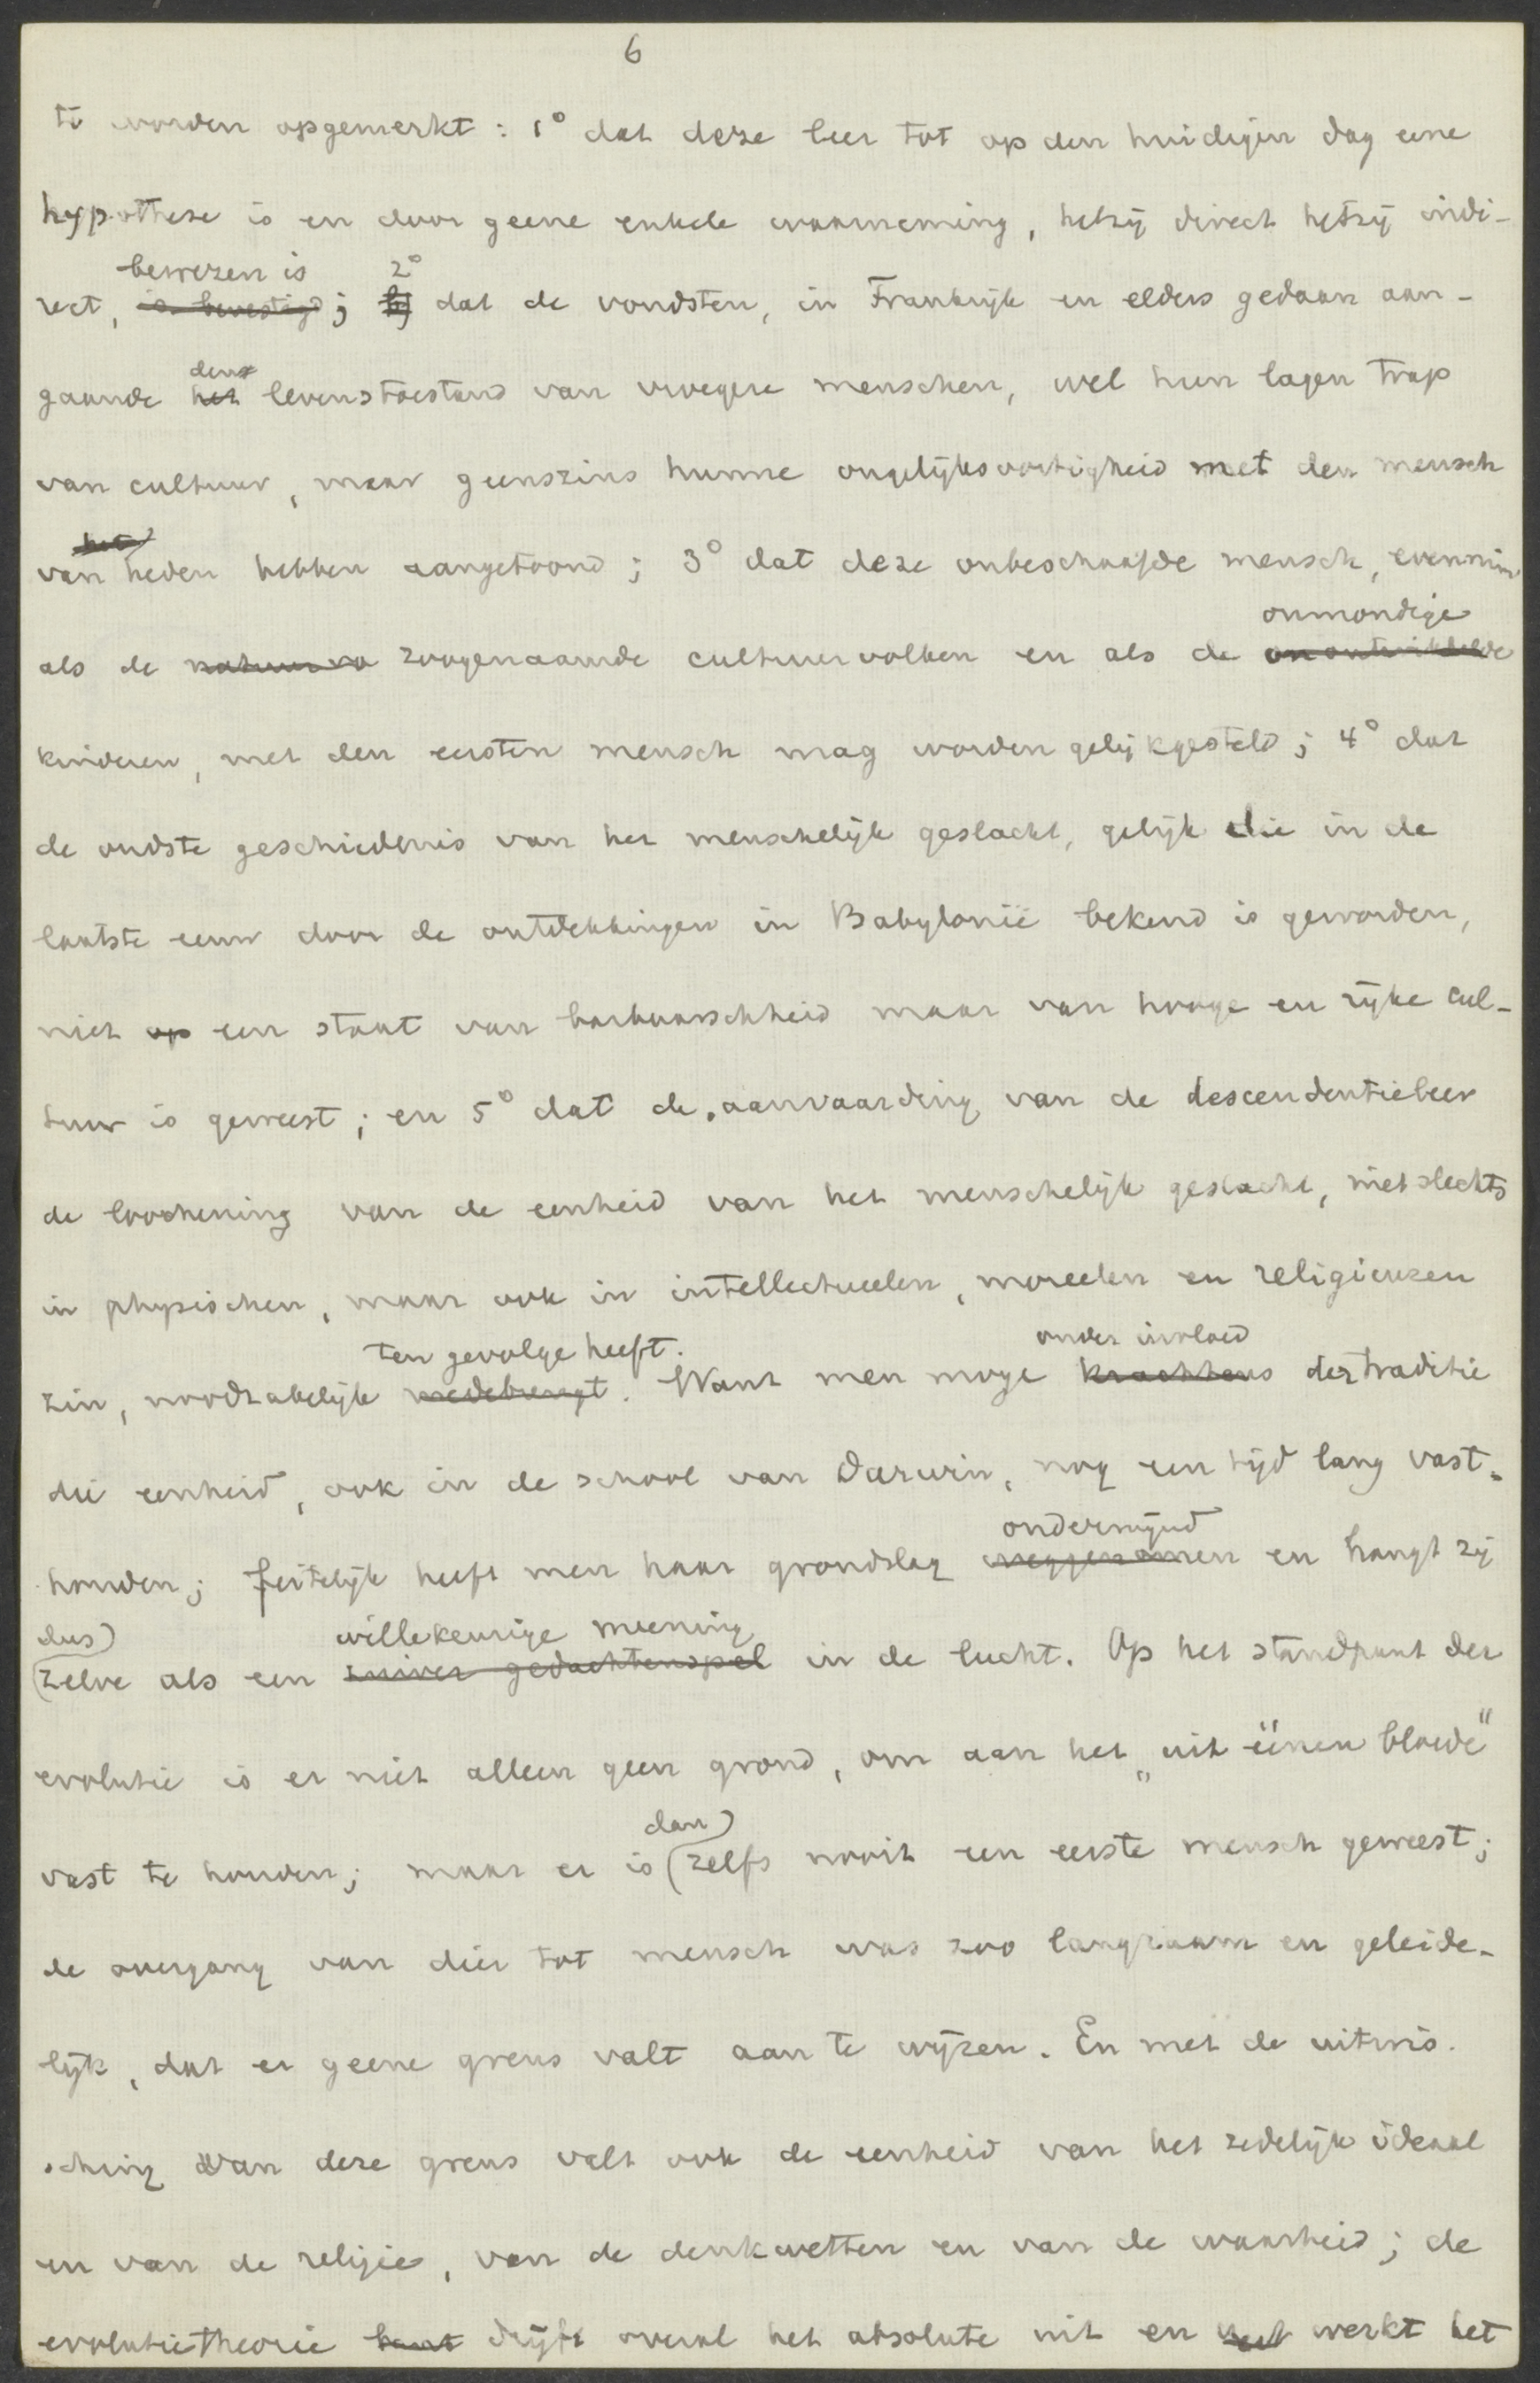 6
te worden opgemerkt : 1° dat deze leer tot op den huidigen dag eene
hypothese is en door geene enkele waarneming, hetzij direct hetzij indi-
bewezen is 2°
rect, is bevestigd ; b) dat de vondsten, in Frankrijk en elders gedaan aan-
den
gaande het levenstoestand van vroegere menschen, wel hun lagen trap
van cultuur, maar geenszins hunne ongelijksoortigheid met den mensch
het
van heden hebben aangetoond ; 3° dat deze onbeschaafde mensch, evenmin
onmondige
als de natuurvo zoogenaamde cultuurvolken en als de onontwikkelde
kinderen, met den eersten mensch mag worden gelijkgesteld ; 4° dat
de oudste geschiedenis van het menschelijk geslacht, gelijk die in de
laatste eeuw door de ontdekkingen in Babylonië bekend is geworden,
niet op een staat van barbaarschheid maar van hooge en rijke cul-
tuur is geweest ; en 5° dat de aanvaarding van de descendentieleer
de loochening van de eenheid van het menschelijk geslacht, niet slechts
in physischen, maar ook in intellectueelen, moreelen en religieuzen
ten gevolge heeft. onder invloed
zin, noodzakelijk medebrengt. Want men moge krachtens der traditie
die eenheid, ook in de school van Darwin, nog een tijd lang vast-
ondermijnd
houden ; feitelijk heeft men haar grondslag weggenomen en hangt zij
dus) willekeurige meening
(zelve als een zuiver gedachtenspel in de lucht. Op het standpunt der
evolutie is er niet alleen geen grond, om aan het „uit éénen bloede"
dan)
vast te houden ; maar er is (zelfs nooit een eerste mensch geweest ;
de overgang van dier tot mensch was zoo langzaam en geleide-
lijk, dat er geene grens valt aan te wijzen. En met de uitwis-
sching van deze grens valt ook de eenheid van het zedelijk ideaal
en van de religie, van de denkwetten en van de waarheid ; de
evolutietheorie drijft overal het absolute uit en werkt het